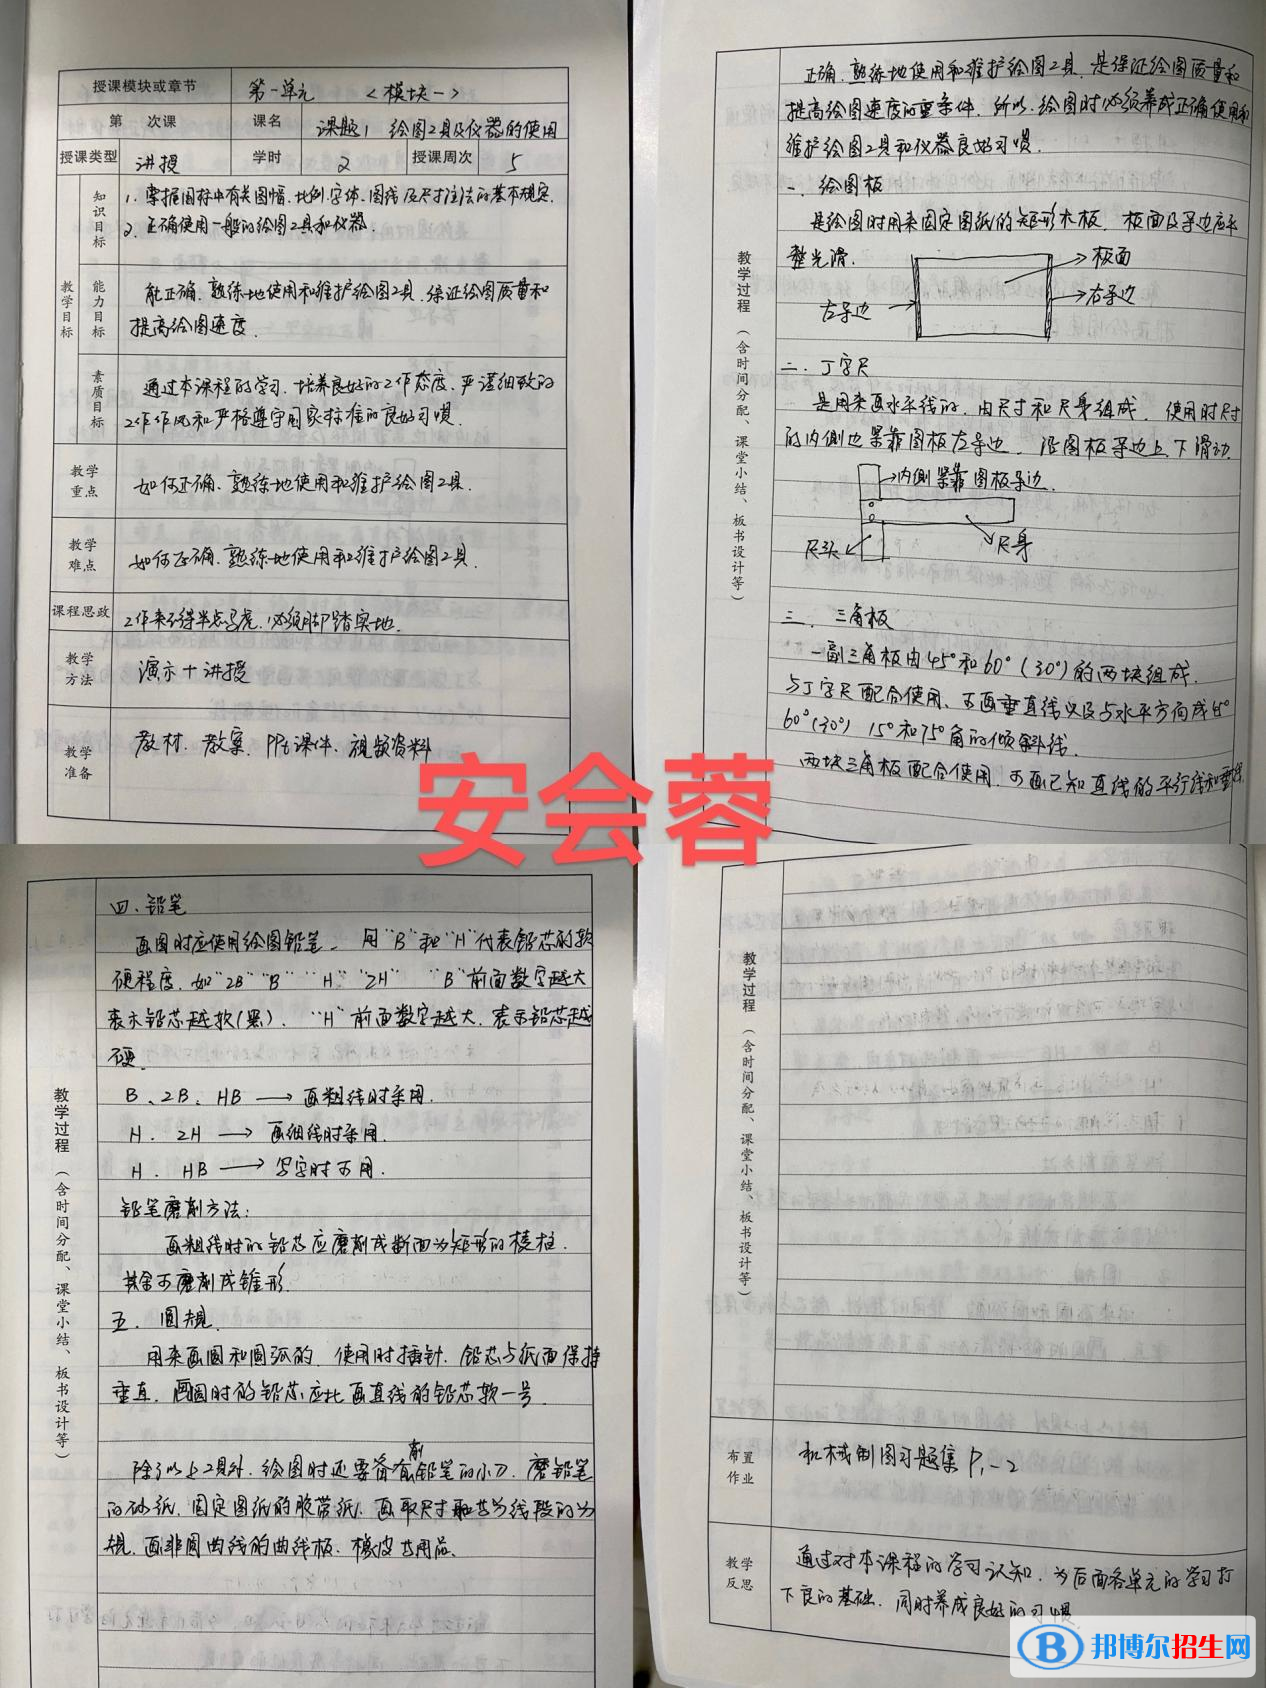 授课模块或章节 第一单元 <模块一>
第 次课 课名 课题1 绘图工具及仪器的使用
授课类型 讲授 学时 2 授课周次 5
教学目标
知识目标
1. 掌握国标中有关图幅、比例、字体、图线及尺寸注法的基本规定.
2. 正确使用一般的绘图工具和仪器.
能力目标
能正确、熟练地使用和维护绘图工具、保证绘图质量和
提高绘图速度.
素质目标
通过本课程的学习、培养良好的工作态度、严谨细致的
工作作风和严格遵守国家标准的良好习惯.
教学重点
如何正确、熟练地使用和维护绘图工具.
教学难点
如何正确、熟练地使用和维护绘图工具.
课程思政
工作来不得半点马虎、必须脚踏实地.
教学方法
演示+讲授
教学准备
教材、教案、PPt课件、视频资料
教学过程(含时间分配、课堂小结、板书设计等)
正确、熟练地使用和维护绘图工具、是保证绘图质量和
提高绘图速度的重条件. 所以、绘图时必须养成正确使用和
维护绘图工具和仪器良好习惯.
一、绘图板
是绘图时用来固定图纸的矩形木板、板面及导边应平
整光滑.
板面
左导边
右导边
二、丁字尺
是用来画水平线的、由尺寸和尺身组成. 使用时尺寸
的内侧边紧靠图板左导边、沿图板导边上、下滑动.
内侧紧靠图板导边.
尺头
尺身
三、三角板
一副三角板由45°和60°(30°)的两块组成.
与丁字尺配合使用、可画垂直线以及与水平方向成45°
60°(30°) 15°和75°角的倾斜线.
两块三角板配合使用、可画已知直线的平行线和垂线.
安会蓉
教学过程(含时间分配、课堂小结、板书设计等)
四、铅笔
画图时应使用绘图铅笔、用"B"和"H"代表铅芯的软
硬程度、如"2B""B" "H" "2H" "B"前面数字越大
表示铅芯越软(黑)、"H"前面数字越大、表示铅芯越
硬.
B、2B、HB → 画粗线时采用.
H、2H → 画细线时采用.
H、HB → 写字时可用.
铅笔磨削方法:
画粗线时的铅芯应磨削成断面为矩形的棱柱.
其余可磨削成锥形.
五、圆规.
用来画圆和圆弧的、使用时插针、铅芯与纸面保持
垂直、画圆时的铅芯应比画直线的铅芯软一号.
除了以上工具外、绘图时还要备有削铅笔的小刀、磨铅笔
的砂纸、固定图纸的胶带纸、画取尺寸和等分线段的分
规、画非圆曲线的曲线板、橡皮等用品.
教学过程(含时间分配、课堂小结、板书设计等)
布置作业
机械制图习题集P1-2
教学反思
通过对本课程的学习认知、为后面各单元的学习打
下良的基础、同时养成良好的习惯.
邦博尔招生网